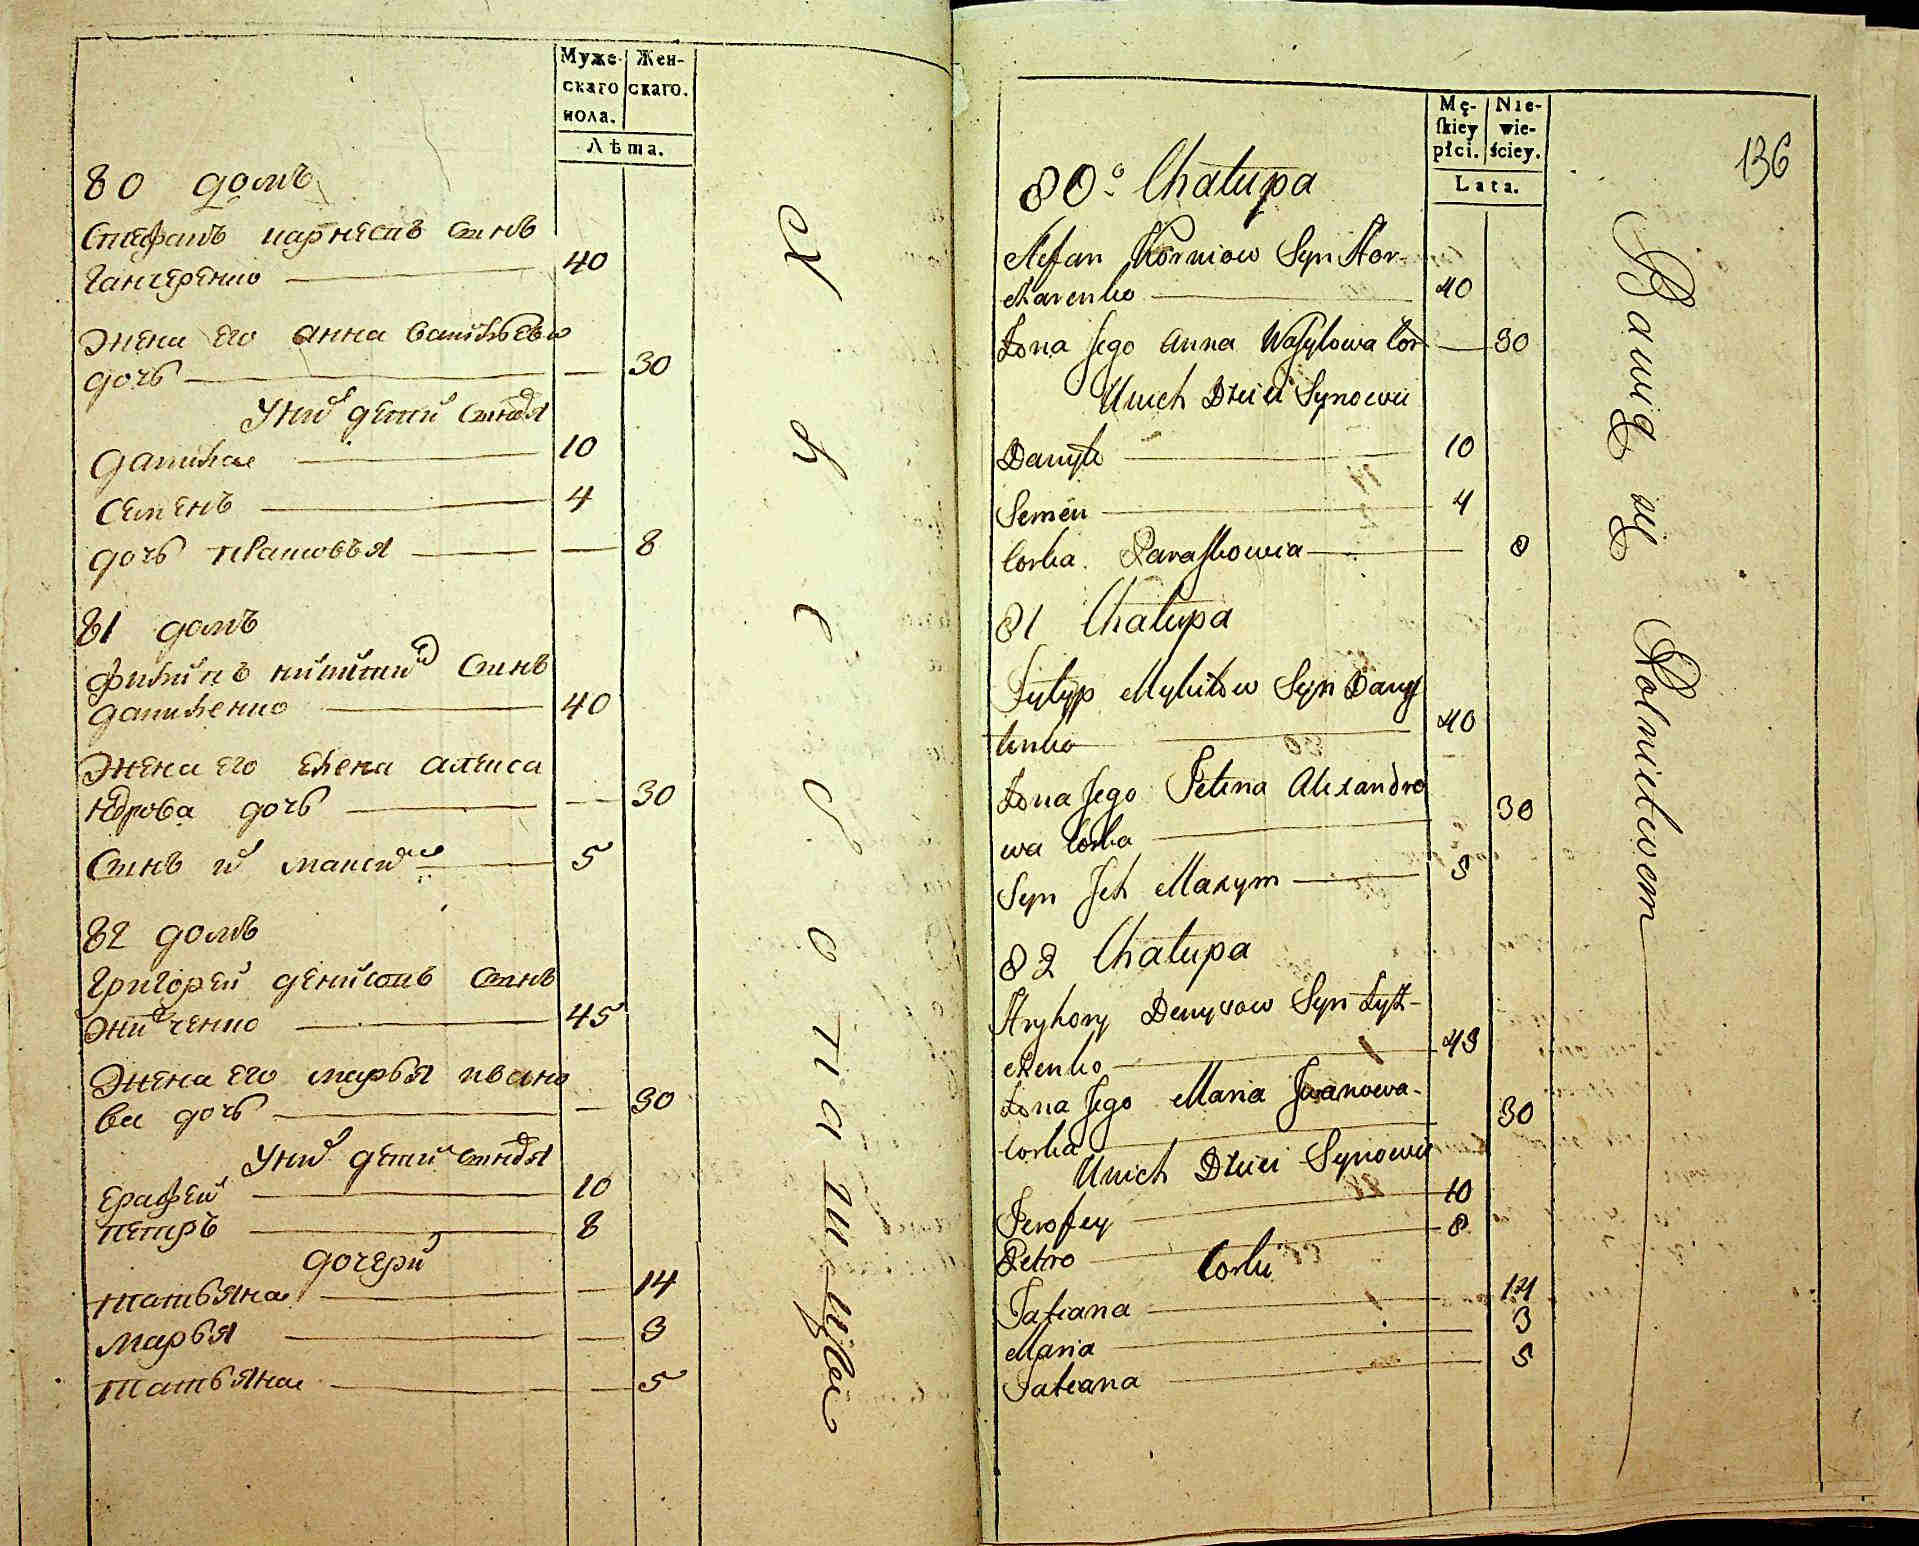 Муже- Жен-
скаго скаго.
пола.
Лѣта.
80 домъ
Стефанъ карнеевъ сынъ
Гончеренко 40
жена его анна васильева
дочь 30
у них дети сыновья
данила 10
семенъ 4
дочь прасковья 8
81 домъ
филипъ никитин сынъ
даниленко 40
жена его елена алекса
ндрова дочь 30
Сынъ их максим 5
82 домъ
григорей денисовъ сынъ
45
жена его марья ивано
ва дочь 30
у них дети сыновья
ерофей 10
петръ 8
дочери
татьяна 14
марья 9
татьяна 5
136
Mę- Nie-
skiey wie-
płci. ściey.
Lata.
80 Chałupa
Stefan Korniow Syn Hon-
czarenko 40
Żona Jego Anna Wasylowa Cor 30
U nich Dzieci Synowie
Danyło 10
Semen 4
Corka Paraskowia 8
81 Chałupa
Fylyp Mykitow Syn Dany
lenko 40
Żona Jego Jelena Alexandro
wa Corka 30
Syn Jch Maxym 5
82 Chałupa
Hryhory Denysow Syn
45
Żona Jego Maria Jwanowa
Corka 30
U nich Dzieci Synowie
Jerofey 10
Petro 8
Corki
Tatiana 14
Maria 9
Tatiana 5
Bawią się Rolnictwem